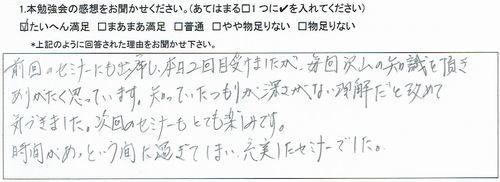 1.本勉強会の感想をお聞かせください。(あてはまる□1つに✔を入れてください)
☑たいへん満足 □まあまあ満足 □普通 □やや物足りない □物足りない
*上記のように回答された理由をお聞かせ下さい。
前回のセミナーにも出席し、本日2回目受けましたが、毎回沢山の知識を頂き
ありがたく思っています。知っていたつもりが深さがない理解だと改めて
気づきました。次回のセミナーもとても楽しみです。
時間があっという間に過ぎてしまい、充実したセミナーでした。